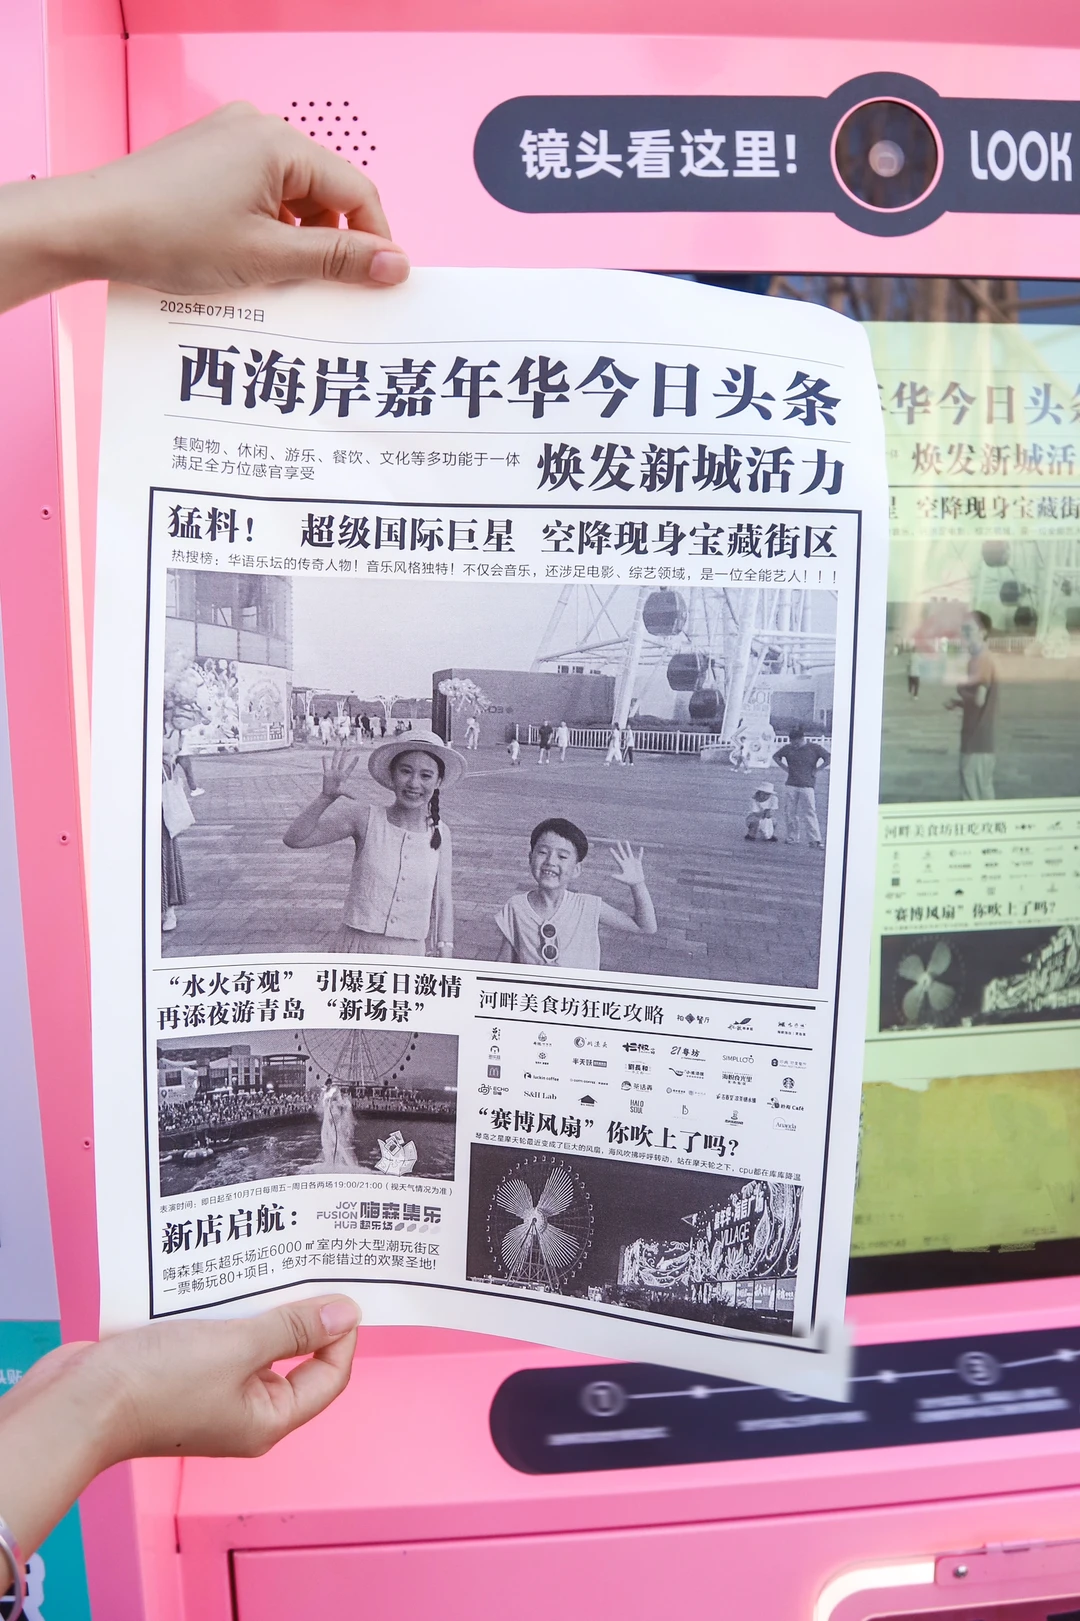 镜头看这里!
LOOK
2025年07月12日
西海岸嘉年华今日头条
集购物、休闲、游乐、餐饮、文化等多功能于一体
满足全方位感官享受
焕发新城活力
猛料! 超级国际巨星 空降现身宝藏街区
热搜榜：华语乐坛的传奇人物！音乐风格独特！不仅会音乐，还涉足电影、综艺领域，是一位全能艺人！！！
“水火奇观” 引爆夏日激情
再添夜游青岛 “新场景”
表演时间：即日起至10月7日每周五-周日各两场19:00/21:00（视天气情况为准）
新店启航：
JOY
FUSION
HUB
嗨森集乐
超乐场
嗨森集乐超乐场近6000㎡室内外大型潮玩街区
一票畅玩80+项目，绝对不能错过的欢聚圣地!
河畔美食坊狂吃攻略
21粤坊
SIMPLLO
半天妖
luckin coffee
ECHO
S&H Lab
HALO
茶话弄
“赛博风扇” 你吹上了吗?
琴岛之星摩天轮最近变成了巨大的风扇，海风吹拂呼呼转动，站在摩天轮之下，cpu都在库库降温
VILLAGE
华今日头
焕发新城活
空降现身宝藏街
河畔美食坊狂吃攻略
“赛博风扇” 你吹上了吗?
①
③